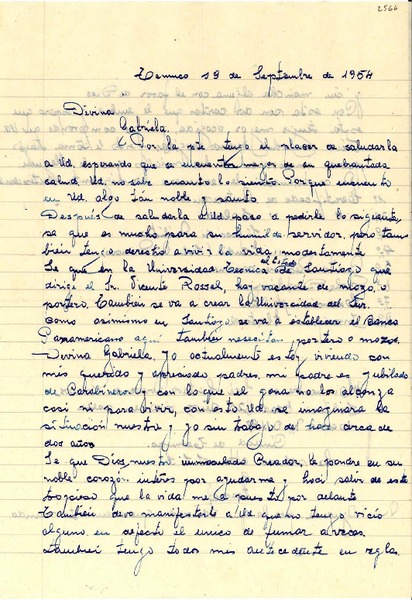 2566
Temuco 19 de Septiembre de 1954
Divina
Gabriela.
Por la pte tengo el placer de saludarla
a Ud, esperando que se encuentre mejor de su quebrantada
salud. Ud. no sabe cuanto lo siento. Porque encuentro
en Ud, algo tan noble y santo
Después de saludarla a Ud paso a pedirle lo siguiente
se que es mucho para un humilde servidor, pero tam
bien tengo derecho a vivir la vida, modestamente
Se que en la Universidad Tecnica del Estado de Santiago que
dirige el Sr. Vicente Rossel, hay vacante de mozo, o
portero, tambien se va a crear la Universidad del Sur.
como asimismo en Santiago se va a establecer el Banco
Panamericano aqui tambien nesecitan, portero o mozos.
Divina Gabriella, Yo actualmente estoy viviendo con
mis queridos y apreciado padres, mi padre es jubilado
de Carabineros y con lo que el gana no los alcanza
casi ni por vivir, con esto Ud. se imaginara la
situación nuestra y yo sin trabajo de hace cerca de
dos años
Se que Dios nuestro inmaculado Creador, le pondre en su
noble corazón. interes por ayudarme y haci salir de este
que la vida me a puesto por delante
Tambien devo manifestarle a Ud que no tengo vicio
alguno, en defecto el unico de fumar a veces.
tambien tengo todos mis antecedente en regla.